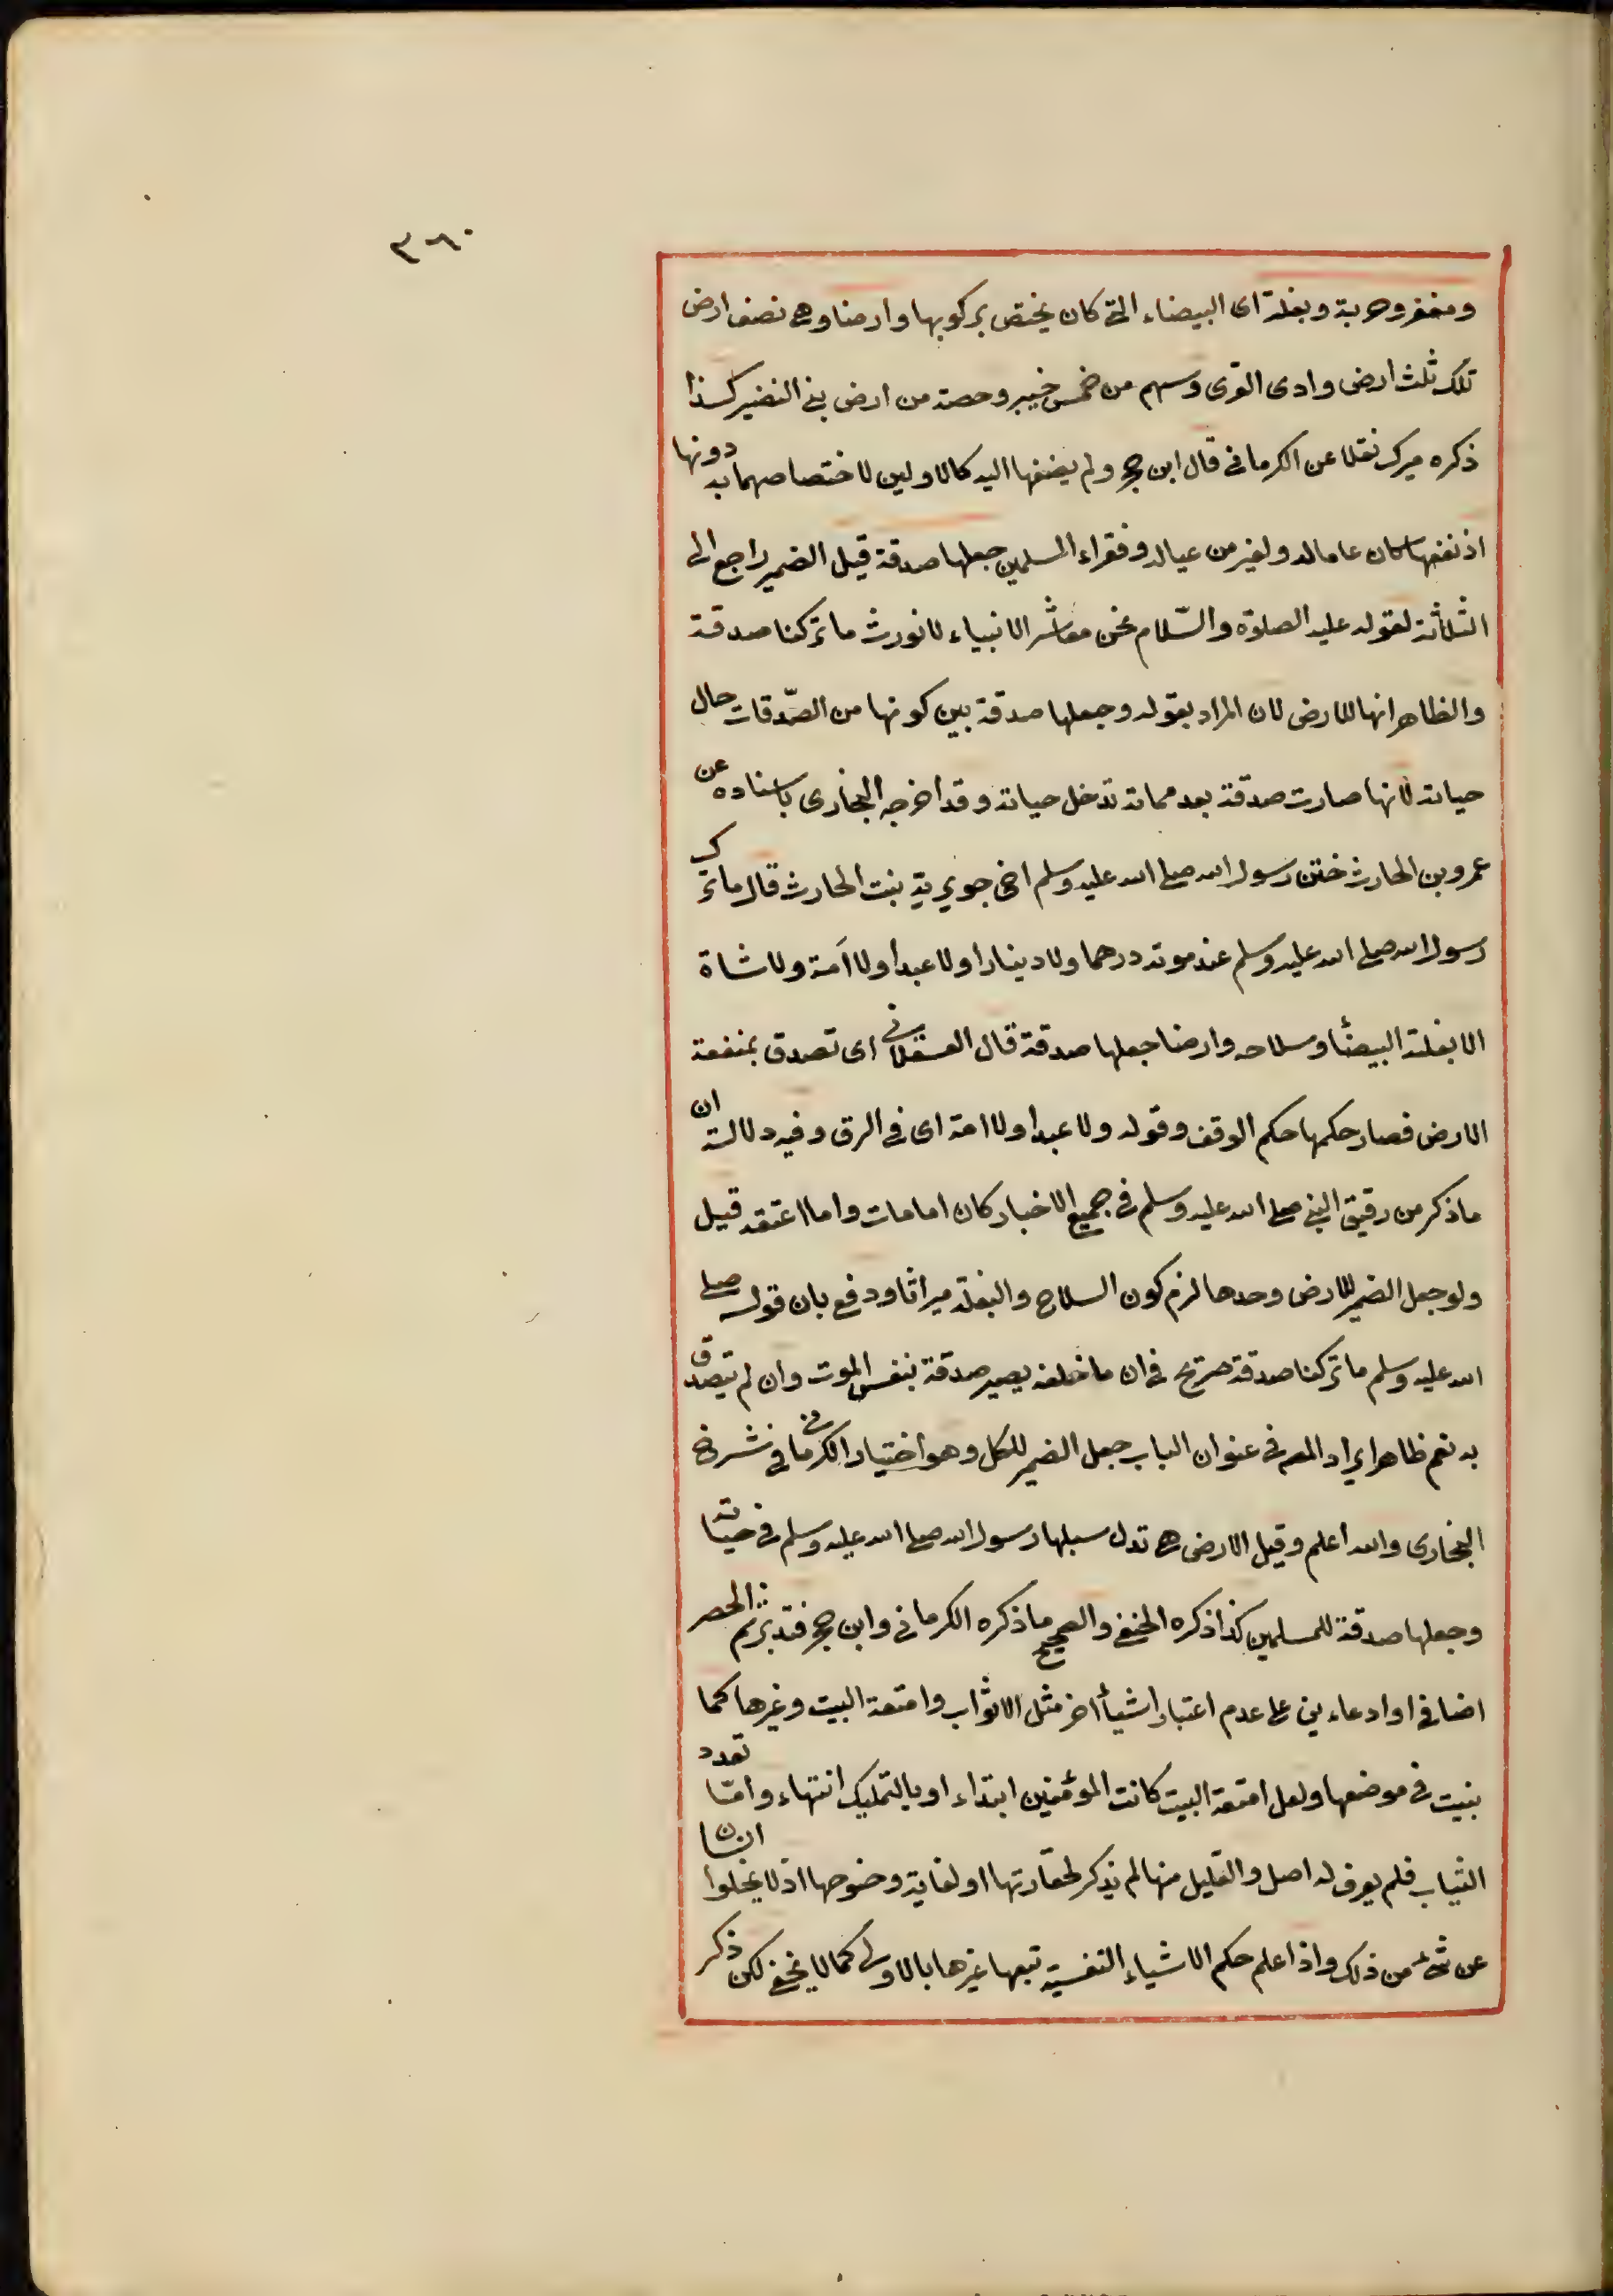 ٣٦٠
ومغفر وحربة وبغلة اى البيضاء التى كان يختص بركوبها وارضا وهى نصف ارض
تلك ثلث ارض وادى القرى وسهم من خمس خيبر وحصة من ارض بنى النضير كذا
ذكره ميرك نقلا عن الكرمانى قال ابن حجر ولم يضفها اليه كالاولين لاختصاصهما به دونها
اذ نفعها كان عاما له ولغيره من عياله وفقراء المسلمين جعلها صدقة قيل الضمير راجع الى
الثلاثة لقوله عليه الصلوة والسّلام نحن معاشر الانبياء لا نورث ما تركنا صدقة
والظاهر انها للارض لان المراد بقوله وجعلها صدقة بين كونها من الصّدقات حال
حياته لانها صارت صدقة بعد مماته تدخل حياته وقد اخرجه البخارى باسناده عن
عمرو بن الحارث ختن رسول الله صلى الله عليه وسلم اخى جويرية بنت الحارث قال ما ترك
رسول الله صلى الله عليه وسلم عند موته درهما ولا دينارا ولا عبدا ولا اَمة ولا شاة
الا بغلته البيضاء وسلاحه وارضا جعلها صدقة قال العسقلانى اى تصدق بمنفعة
الارض فصار حكمها حكم الوقف وقوله ولا عبدا ولا امة اى فى الرق وفيه دلالة ان
ما ذكر من رقيق النبى صلى الله عليه وسلم فى جميع الاخبار كان اما مات واما اعتقه قيل
ولو جعل الضمير للارض وحدها لزم كون السلاح والبغلة ميراثا ودفع بان قوله صلى
الله عليه وسلم ما تركنا صدقة صريح فى ان ما خلفه يصير صدقة بنفس الموت وان لم يتصدق
به نعم ظاهر ايراد المصر فى عنوان الباب جعل الضمير للكل وهو اختيار الكرمانى فى شرح
البخارى والله اعلم وقيل الارض هى تدل سبلها رسول الله صلى الله عليه وسلم فى حياته
وجعلها صدقة للمسلمين كذا ذكره الحنفى والصحيح ما ذكره الكرمانى وابن حجر فتدبر ثم الحصر
اضافى او ادعاء بنى على عدم اعتبار اشياء اخر مثل الاثواب وامتعة البيت وغيرها كما
بنيت فى موضعها ولعل امتعة البيت كانت المؤمنين ابتداء او بالتمليك انتهاء وامّا تعدد
الثياب فلم يعرف له اصل والقليل منها لم يذكر لحقارتها او لغاية وضوحها اذ لا يخلوا انسان
عن شىء من ذلك واذا علم حكم الاشياء النفسية تبعها غيرها بالاولى كما لا يخفى لكن ذكر